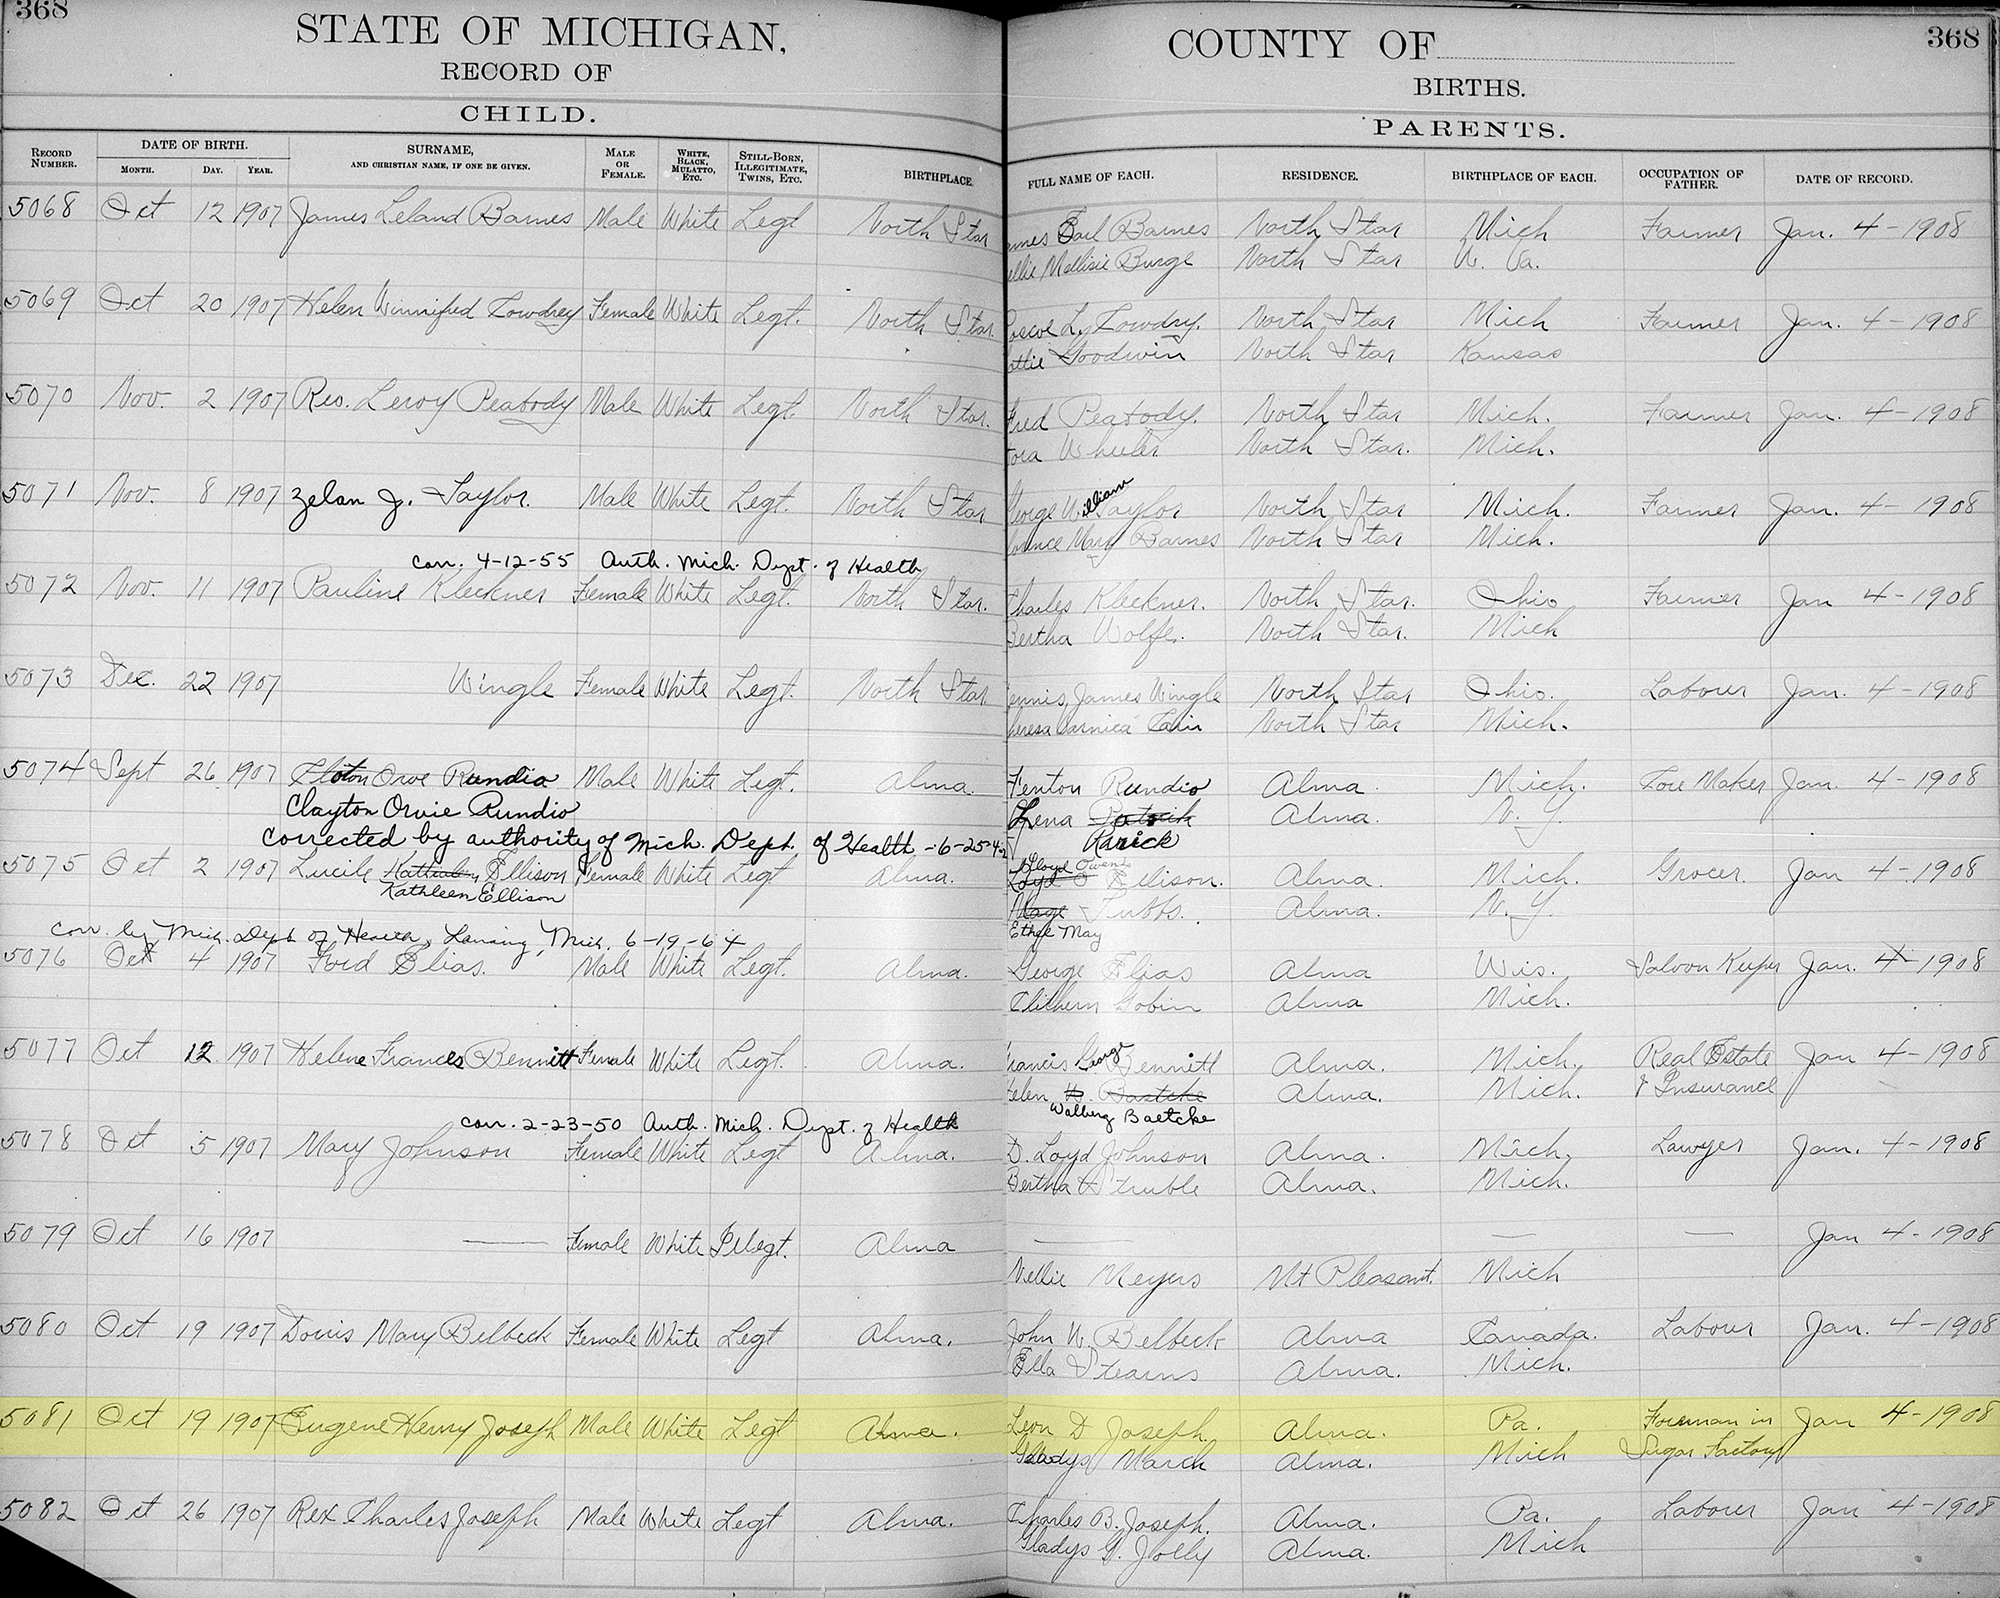 368
STATE OF MICHIGAN,
RECORD OF
CHILD.
COUNTY OF
368
BIRTHS.
PARENTS.
RECORD NUMBER. DATE OF BIRTH. MONTH. DAY. YEAR. SURNAME, AND CHRISTIAN NAME, IF ONE BE GIVEN. MALE OR FEMALE. WHITE, BLACK, MULATTO, ETC. STILL-BORN, ILLEGITIMATE, TWINS, ETC. BIRTHPLACE. FULL NAME OF EACH. RESIDENCE. BIRTHPLACE OF EACH. OCCUPATION OF FATHER. DATE OF RECORD.
5068 Oct 12 1907 James Leland Barnes Male White Legt North Star Earl Barnes North Star Mich Farmer Jan. 4-1908
Burge North Star
5069 Oct 20 1907 Helen Winnifred Cowdrey Female White Legt. North Star Cowdry. North Star Mich Farmer Jan. 4-1908
Goodwin North Star Kansas
5070 Nov. 2 1907 Leroy Peabody Male White Legt. North Star. Fred Peabody. North Star Mich. Farmer Jan. 4-1908
Wheeler North Star. Mich.
5071 Nov. 8 1907 Zelan J. Taylor. Male White Legt. North Star George William Taylor North Star Mich. Farmer Jan. 4-1908
Mary Barnes North Star Mich.
corr. 4-12-55 Auth. Mich. Dept. of Health
5072 Nov. 11 1907 Pauline Kleckner Female White Legt. North Star. Charles Kleckner. North Star. Ohio Farmer Jan 4-1908
Bertha Wolfe. North Star. Mich
5073 Dec. 22 1907 Wingle Female White Legt. North Star James Wingle North Star Ohio. Labourer Jan. 4-1908
North Star Mich.
5074 Sept 26 1907 Orve Rundio Male White Legt. Alma. Fenton Rundio Alma. Mich. Maker Jan. 4-1908
Clayton Orvie Rundio Lena Alma. N. Y.
corrected by authority of Mich. Dept. of Health -6-25-42 Rarick
5075 Oct 2 1907 Lucile Ellison Female White Legt Alma. Lloyd Owen Ellison. Alma. Mich. Grocer Jan 4-1908
Kathleen Ellison Tubbs. Alma. N. Y.
Corr. by Mich. Dept of Health, Lansing, Mich. 6-19-64 May
5076 Oct 4 1907 Ford Elias. Male White Legt. Alma. George Elias Alma Wis. Saloon Keeper Jan. 4-1908
Gobin Alma Mich.
5077 Oct 12 1907 Helene Frances Bennett Female White Legt. Alma. Francis George Bennett Alma. Mich. Real Estate Jan 4-1908
Helen Alma. Mich. & Insurance
Walberg Baetcke
corr. 2-23-50 Auth. Mich. Dept. of Health
5078 Oct 5 1907 Mary Johnson Female White Legt Alma. D. Loyd Johnson Alma. Mich. Lawyer Jan. 4-1908
Bertha Struble Alma. Mich.
5079 Oct 16 1907 — Female White Illegt. Alma — — — Jan 4-1908
Nellie Meyers Mt Pleasant. Mich
5080 Oct 19 1907 Doris Mary Belbeck Female White Legt Alma. John W. Belbeck Alma Canada. Labourer Jan. 4-1908
Ella Stearns Alma. Mich.
5081 Oct 19 1907 Eugene Henry Joseph Male White Legt Alma. Leon D Joseph. Alma. Pa. Foreman in Jan 4-1908
Gladys March Alma. Mich Sugar Factory
5082 Oct 26 1907 Rex Charles Joseph Male White Legt Alma. Charles B. Joseph. Alma. Pa. Labourer Jan 4-1908
Gladys G. Jolly Alma. Mich